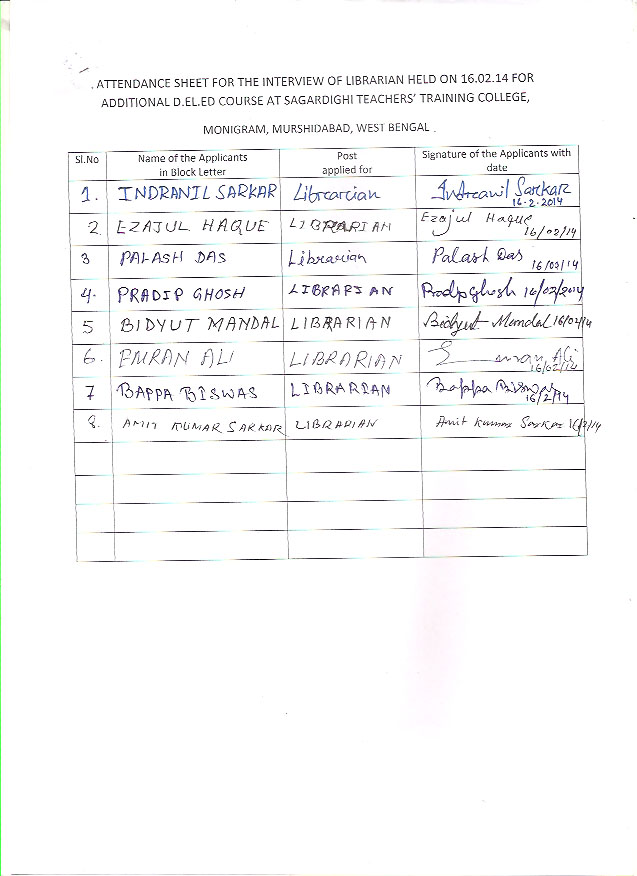 ATTENDANCE SHEET FOR THE INTERVIEW OF LIBRARIAN HELD ON 16.02.14 FOR
ADDITIONAL D.EL.ED COURSE AT SAGARDIGHI TEACHERS' TRAINING COLLEGE,
MONIGRAM, MURSHIDABAD, WEST BENGAL .
Sl.No Name of the Applicants in Block Letter Post applied for Signature of the Applicants with date
1. INDRANIL SARKAR Librarian Indranil Sarkar 16-2-2014
2. EZAJUL HAQUE LIBRARIAN Ezajul Haque 16/02/14
3 PALASH DAS Librarian Palash Das 16/02/14
4. PRADIP GHOSH LIBRARIAN Pradip Ghosh 16/02/2014
5 BIDYUT MANDAL LIBRARIAN Bidyut Mandal 16/02/14
6. EMRAN ALI LIBRARIAN Ali 16/02/14
7 BAPPA BISWAS LIBRARIAN Bappa Biswas 16/2/14
8. AMIT KUMAR SARKAR LIBRARIAN Amit Kumar Sarkar 16/2/14